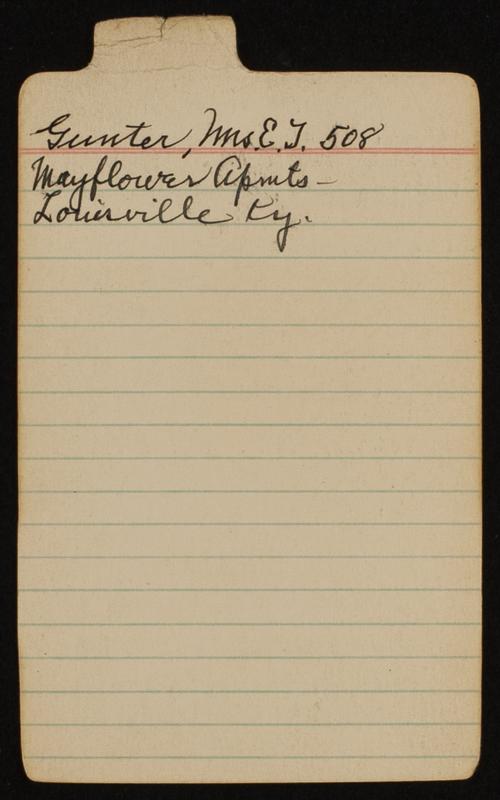 Gunter, Mrs. E. T. 508
Mayflower Apmts -
Louisville Ky.